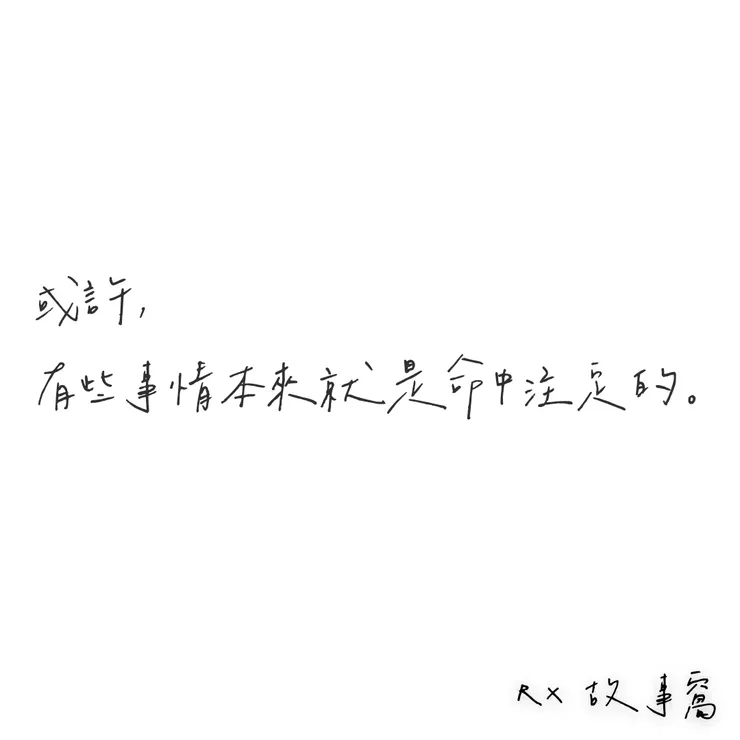 或許,
有些事情本來就是命中注定的。
RX 故事窩